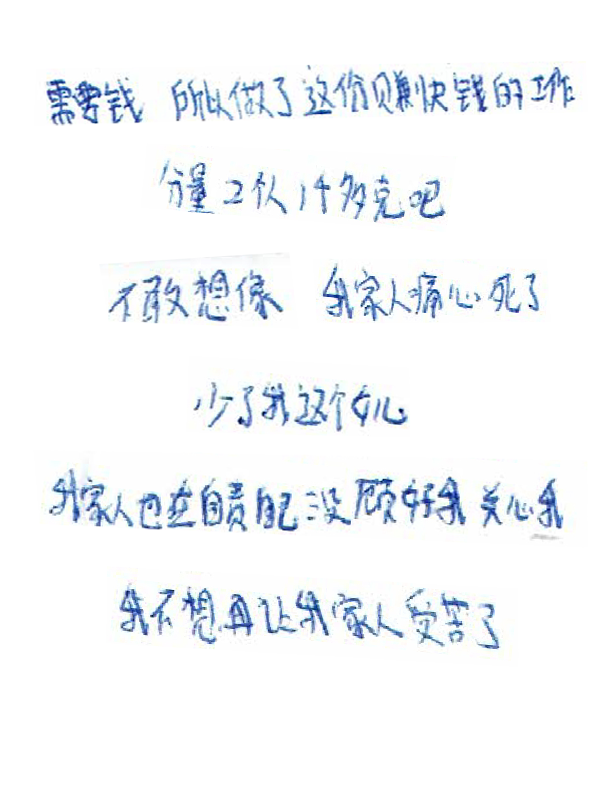 需要钱 所以做了这份赚快钱的工作
分量2个人1千多克吧
不敢想像 我家人痛心死了
少了我这个女儿
我家人也在自责自己没顾好我 关心我
我不想再让我家人受苦了